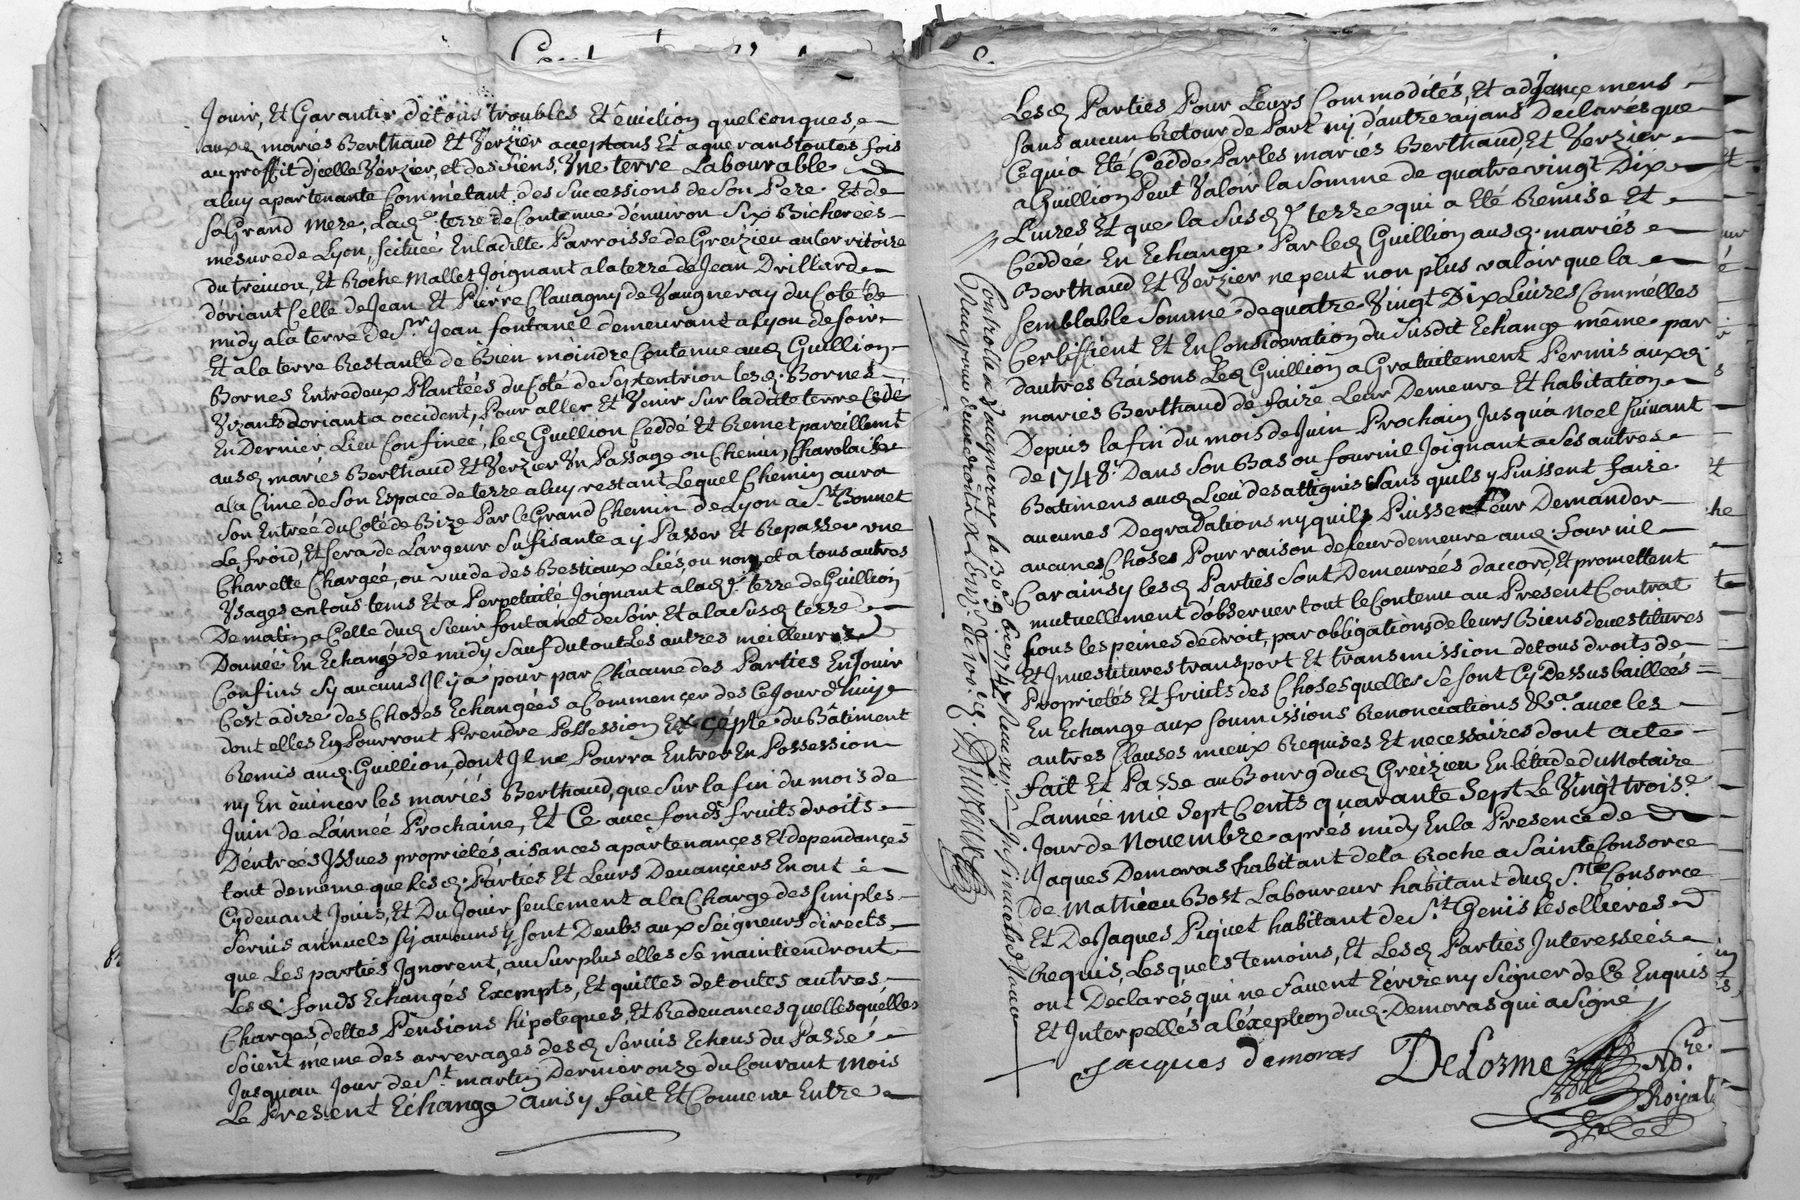 Jouir, Et Garantir de tous troubles Et éviction quelconques,
auxd mariés Berthaud Et Verzier aceptans Et aquerans toutes fois
au proffit dicelle Verzier, et des siens, Une terre Labourable
a luy apartenante Comme étant des Successions de Son Pere Et de
Sa Grand Mere, Lade. terre de Contenue d'environ Six Bicherées
mesure de Lyon, scituée En ladite Parroisse de Greizieu au territoire
du treivou, Et Roche Mallet Joignant a la terre de Jean Drillard
d'oriant Celle de Jean Et Pierre Clavagny de Vaugneray du Coté de
midy a la terre de Sr. Jean fontanel demeurant a Lyon de soir
Et a la terre Restante de Bien moindre Contenue aud Guillion
Bornes Entre deux Plantées du Coté de Septentrion lesd. Bornes
Vizants doriant a occident, Pour aller Et Venir Sur la ditte terre Cedé
En Dernier Lieu Confinéé, led Guillion Ceddé Et Remet pareillemt
ausd mariés Berthaud Et Verzier Vn Passage ou Chemin Charolaible
a la Cime de Son Espace de terre a luy restant Lequel Chemin aura
Son Entréé du Coté de Bize Par le Grand Chemin de Lyon a St. Bonnet
Le froid, Et Sera de Largeur Sufisante a y Passer Et Repasser une
Charette Chargéé, ou vuide des Bestiaux Liés, ou non, et a tous autres
Vsages en tous tems Et a Perpetuité Joignant a lade. terre de Guillion
De matin a Celle dud Sieur fontanel de Soir Et a la Susd terre
Donnéé En Echange de midy Sauf du tout Les autres meilleurs
Confins Sy aucuns Il y a pour par Chacune des Parties En Jouir
Cest a dire des Choses Echangéés a Commencer des Ce Jour d'huiye
dont elles En Pourront Prendre Possession Excépté du Bâtiment
Remis aud. Guillion, dont Il ne Pourra Entrer En Possession
ny En évincer les mariés Berthaud, que Sur la fin du mois de
Juin de L'annéé Prochaine, Et Ce avec fonds fruits droits
D'entréés Issues proprietés, aisances apartenançes Et dependançes
tout de meme que Lesd. Parties Et Leurs Devançiers En ont
Cydevant Jouis, Et Du Jouir Seulement a la Charge des Simples
Servis annuels Sy aucuns y Sont Deubs aux Seigneurs directs
que Les parties Ignorent, au Surplus elles Se maintiendront
Lesd. fonds Echangés Exempts, Et quilles de toutes autres
Charges dettes Pensions hipoteques, Et Redevances quelles quelles
Soient meme des arrerages desd Servis Echeus du Passé
Jusquau Jour de St. martin Dernier onze du Courant Mois
Le Present Echange ainsy fait Et Convenu Entre
Lesd Parties Pour Leurs Commodités, Et adjançemens
Sans aucun Retour de Part ny d'autre ayans Declarés que
Ce qui a Eté Ceddé Par les mariés Berthaud, Et Verzier
a Guillion Peut Valoir la Somme de quatre vingt Dix
Livres Et que la Susde. terre qui a Eté Remise Et
Ceddéé En Echange Par led Guillion ausd. mariés
Berthaud Et Verzier ne peut non plus valoir que la
Semblable Somme de quatre Vingt Dix Livres Comme Elles
Certiffient Et En Consideration du Susdit Echange même par
dautres Raisons Led Guillion a Gratuitement Permis auxd.
mariés Berthaud de faire Leur Demeure Et habitation
Depuis la fin du mois de Juin Prochain Jusqu'a Noel Suivant
de 1748. Dans Son Bas ou fournil Joignant a Ses autres
Batimens aud Lieu des attignis Sans quils y Puissent faire
aucunes Degradations ny quil Puisse Leur Demander
aucunes Choses Pour raison de leur demeure aud. fournil
Car ainsy lesd Parties Sont Demeurées d'accord, Et promettent
mutuellement d'observer tout le Contenu au Present Contrat
Sous les peines de droit, par obligations de leurs Biens devestitures
Et Investitures transport Et transmission de tous droits de
Proprietés Et fruits des Choses quelles Se sont Cy Dessus bailléés
En Echange aux Soumissions Renonciations &a. avec les
autres Clauses mieux Requises Et necessaires dont acte
fait Et Passe au Bourg dud Greizieu En létude du Notaire
Lannéé mil Sept Cents quarante Sept Le Vingt trois.e
Jour de Novembre aprés midy En la Presence de
Jaques Demoras habitant de la Roche a Sainte Consorce
de Mathieu Bost Laboureur habitant dud Ste. Consorce
Et De Jaques Piquet habitant de St. Genis les ollieres
Requis, Lesquels temoins, Et Lesd Parties Interessées
ont Déclarés qui ne Savent Ecrire ny Signer de Ce Enquis
Et Interpellés a l'exeption dud. Demoras qui a Signé
Jacques demoras Delorme Nore.
Royal
Controllé a Vaugneray le 30e. 9bre 1747